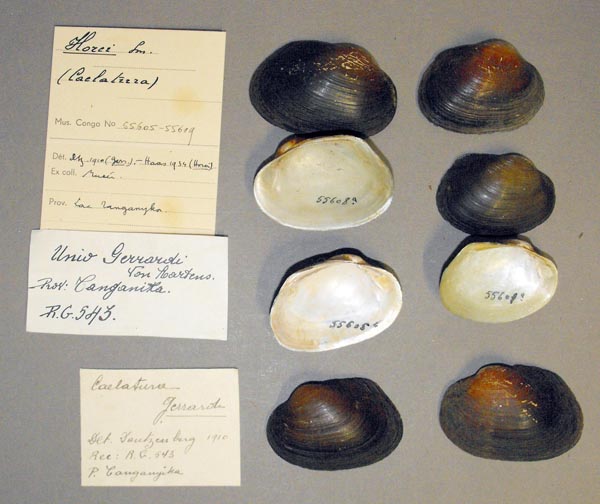 Horei Sm.
(Caelatura)
Mus. Congo No 55605-55609
Dét. 1910 (Gerr.). - Haas 1936 (Horei)
Ex coll. Musée.
Prov. Lac Tanganyka.
Unio Gerrardi
Von Martens.
Rov: Tanganika.
R.G. 543.
Caelatura
Gerrardi
Det. Dautzenberg 1910
Rec: R.G. 543
P. Tanganyika